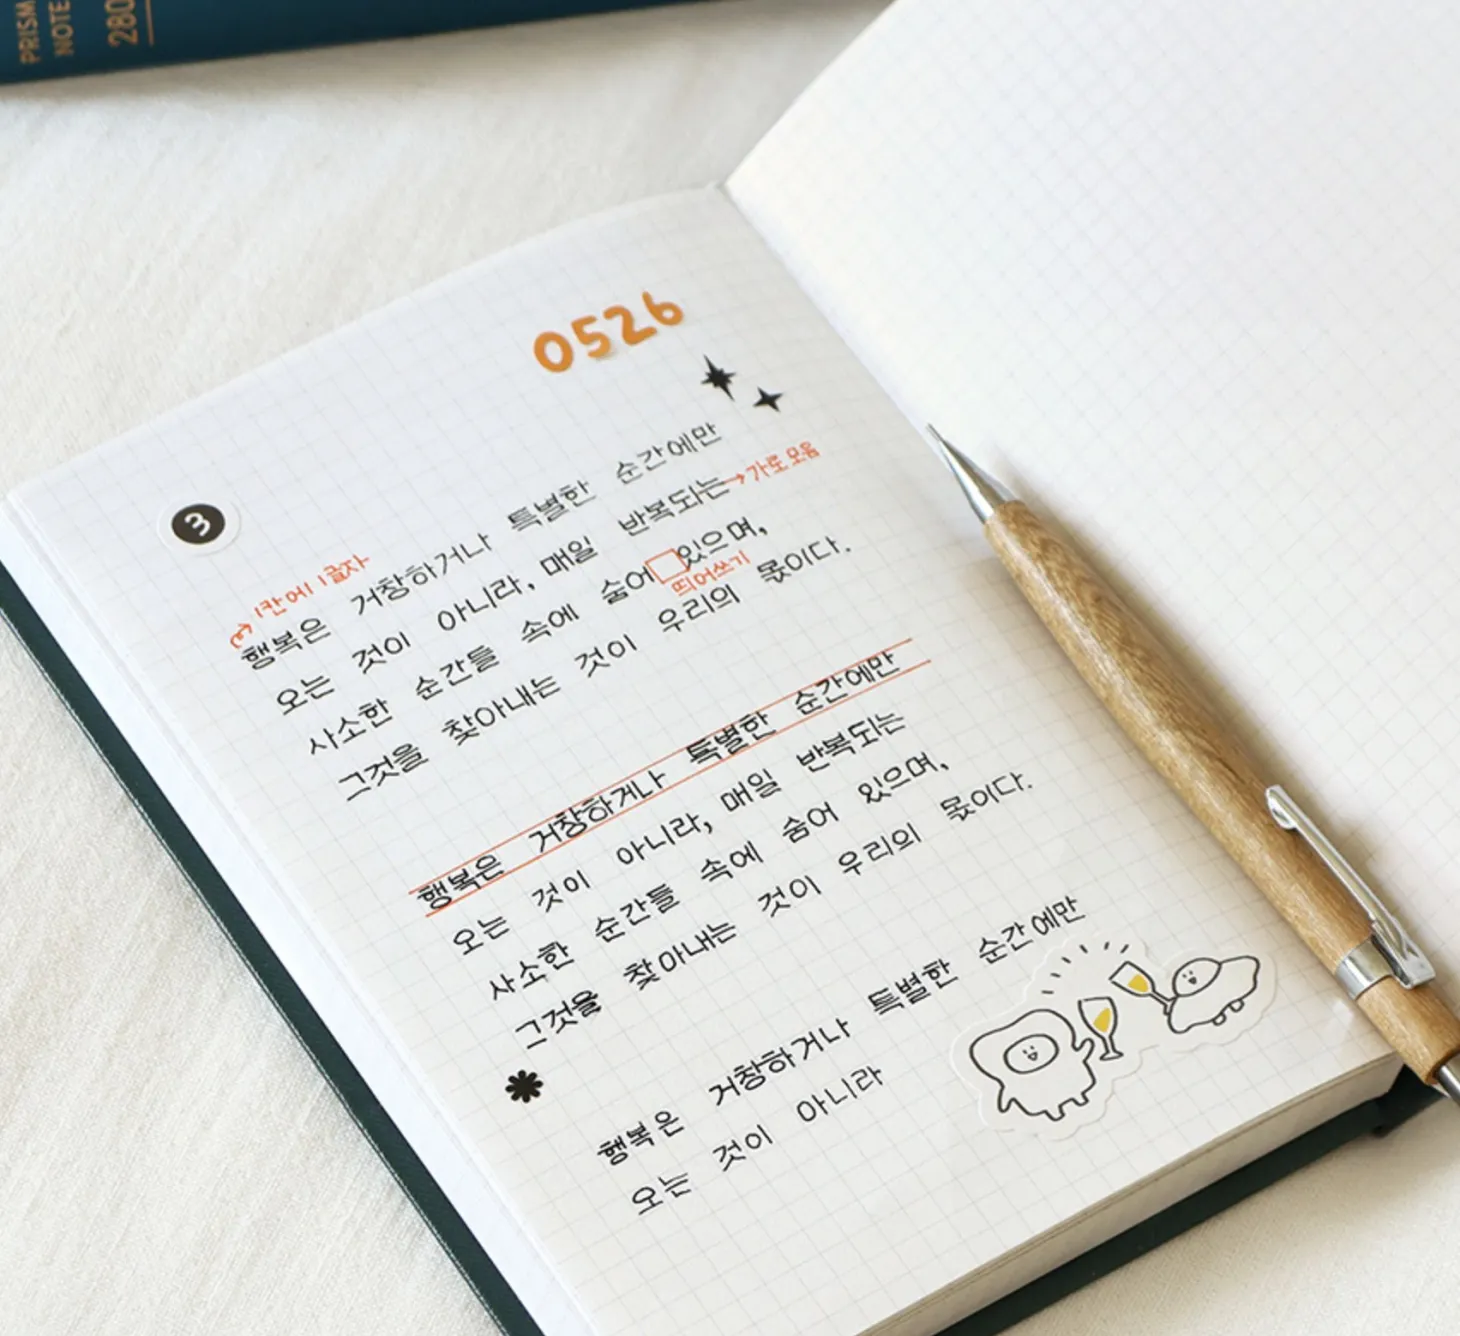 PRISM
NOTE
280
0526
3
1칸에 1글자
행복은 거창하거나 특별한 순간에만
오는 것이 아니라, 매일 반복되는 → 가로모음
사소한 순간들 속에 숨어 있으며,
띄어쓰기
그것을 찾아내는 것이 우리의 몫이다.
행복은 거창하거나 특별한 순간에만
오는 것이 아니라, 매일 반복되는
사소한 순간들 속에 숨어 있으며,
그것을 찾아내는 것이 우리의 몫이다.
행복은 거창하거나 특별한 순간에만
오는 것이 아니라